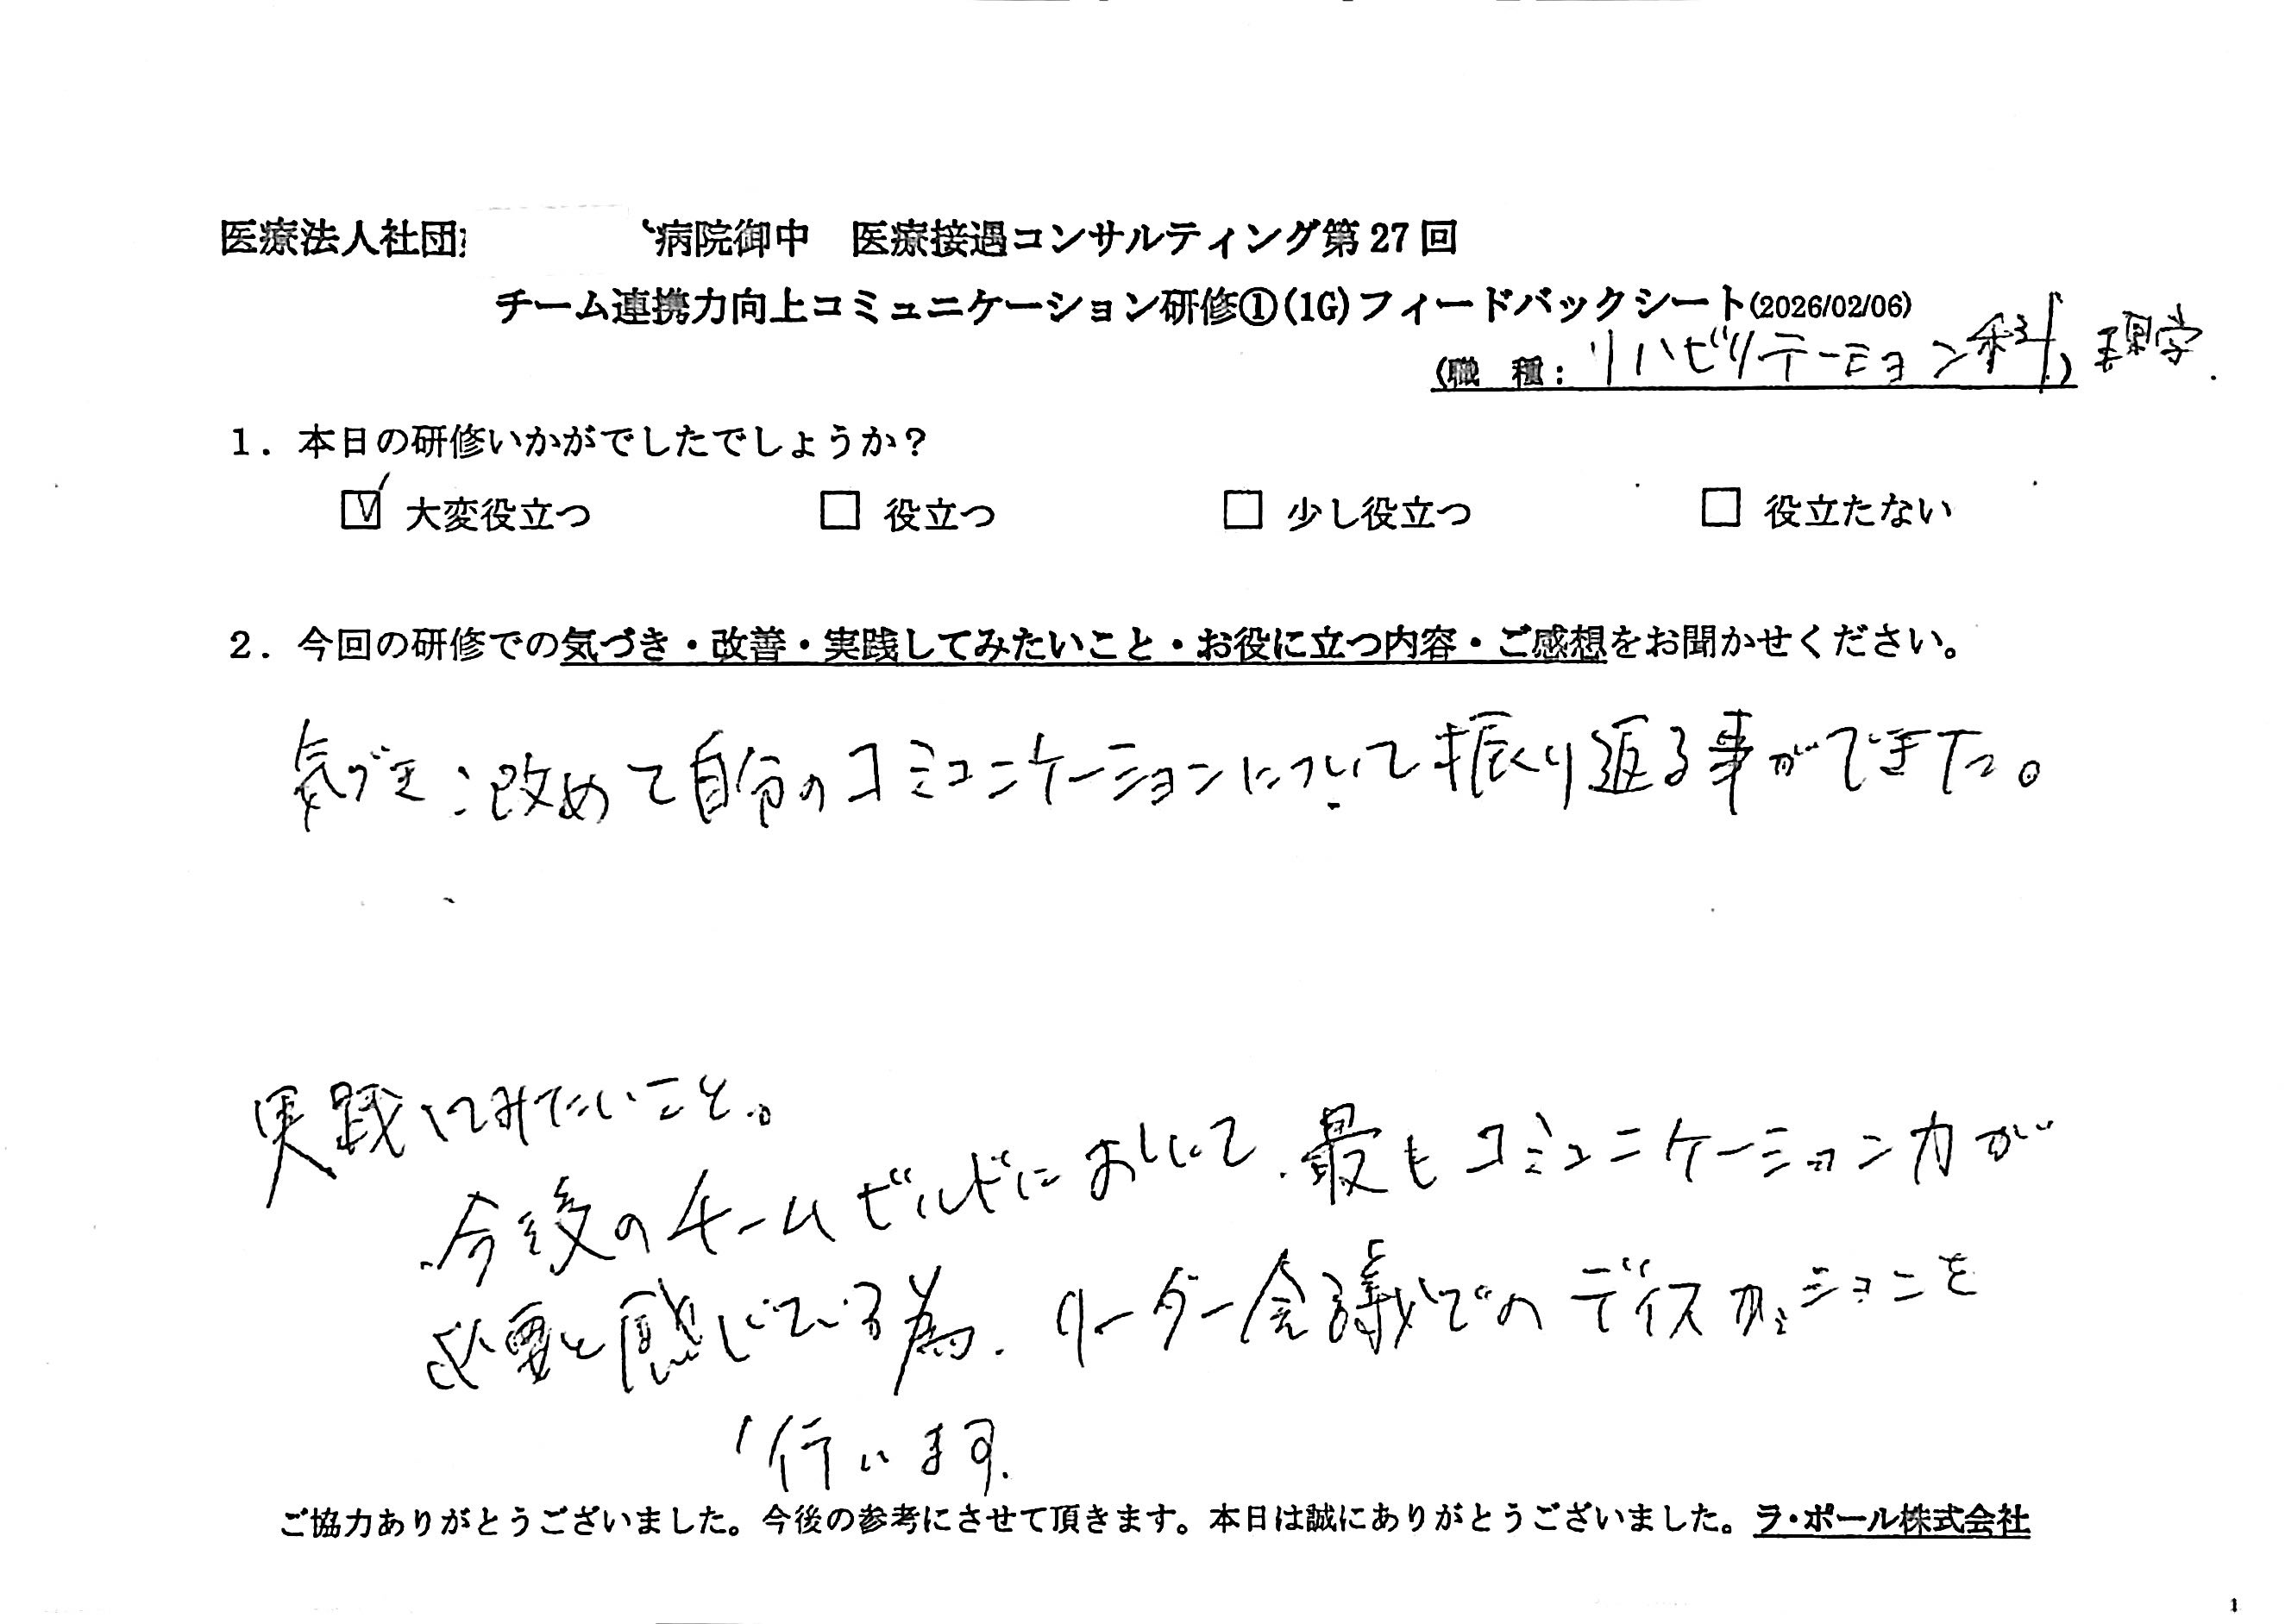 医療法人社団 病院御中 医療接遇コンサルティング第27回
チーム連携力向上コミュニケーション研修①(1G)フィードバックシート(2026/02/06)
(職 種: リハビリテーション科) 理学
1. 本日の研修いかがでしたでしょうか?
☑ 大変役立つ □ 役立つ □ 少し役立つ □ 役立たない
2. 今回の研修での気づき・改善・実践してみたいこと・お役に立つ内容・ご感想をお聞かせください。
気づき:改めて自分のコミュニケーションについて振り返る事ができた。
実践してみたいこと。
今後のチームビルドにおいて、最もコミュニケーション力が
必要と感じている為、リーダー会議でのディスカッションを
行います。
ご協力ありがとうございました。今後の参考にさせて頂きます。本日は誠にありがとうございました。ラ・ポール株式会社
1